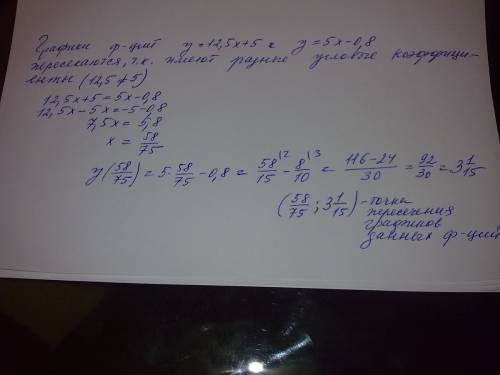 Графики ф-ций y=12,5x+5 и y=5x-0,8
пересекаются, т.к. имеют разные угловые коэффици-
енты (12,5≠5)
12,5x+5=5x-0,8
12,5x-5x=-5-0,8
7,5x=5,8
x = 58/75
y(58/75)=5·58/75-0,8=58/15\2-8/10\3=116-24/30=92/30=3 1/15
(58/75; 3 1/15)-точка
пересечения
графиков
данных ф-ций